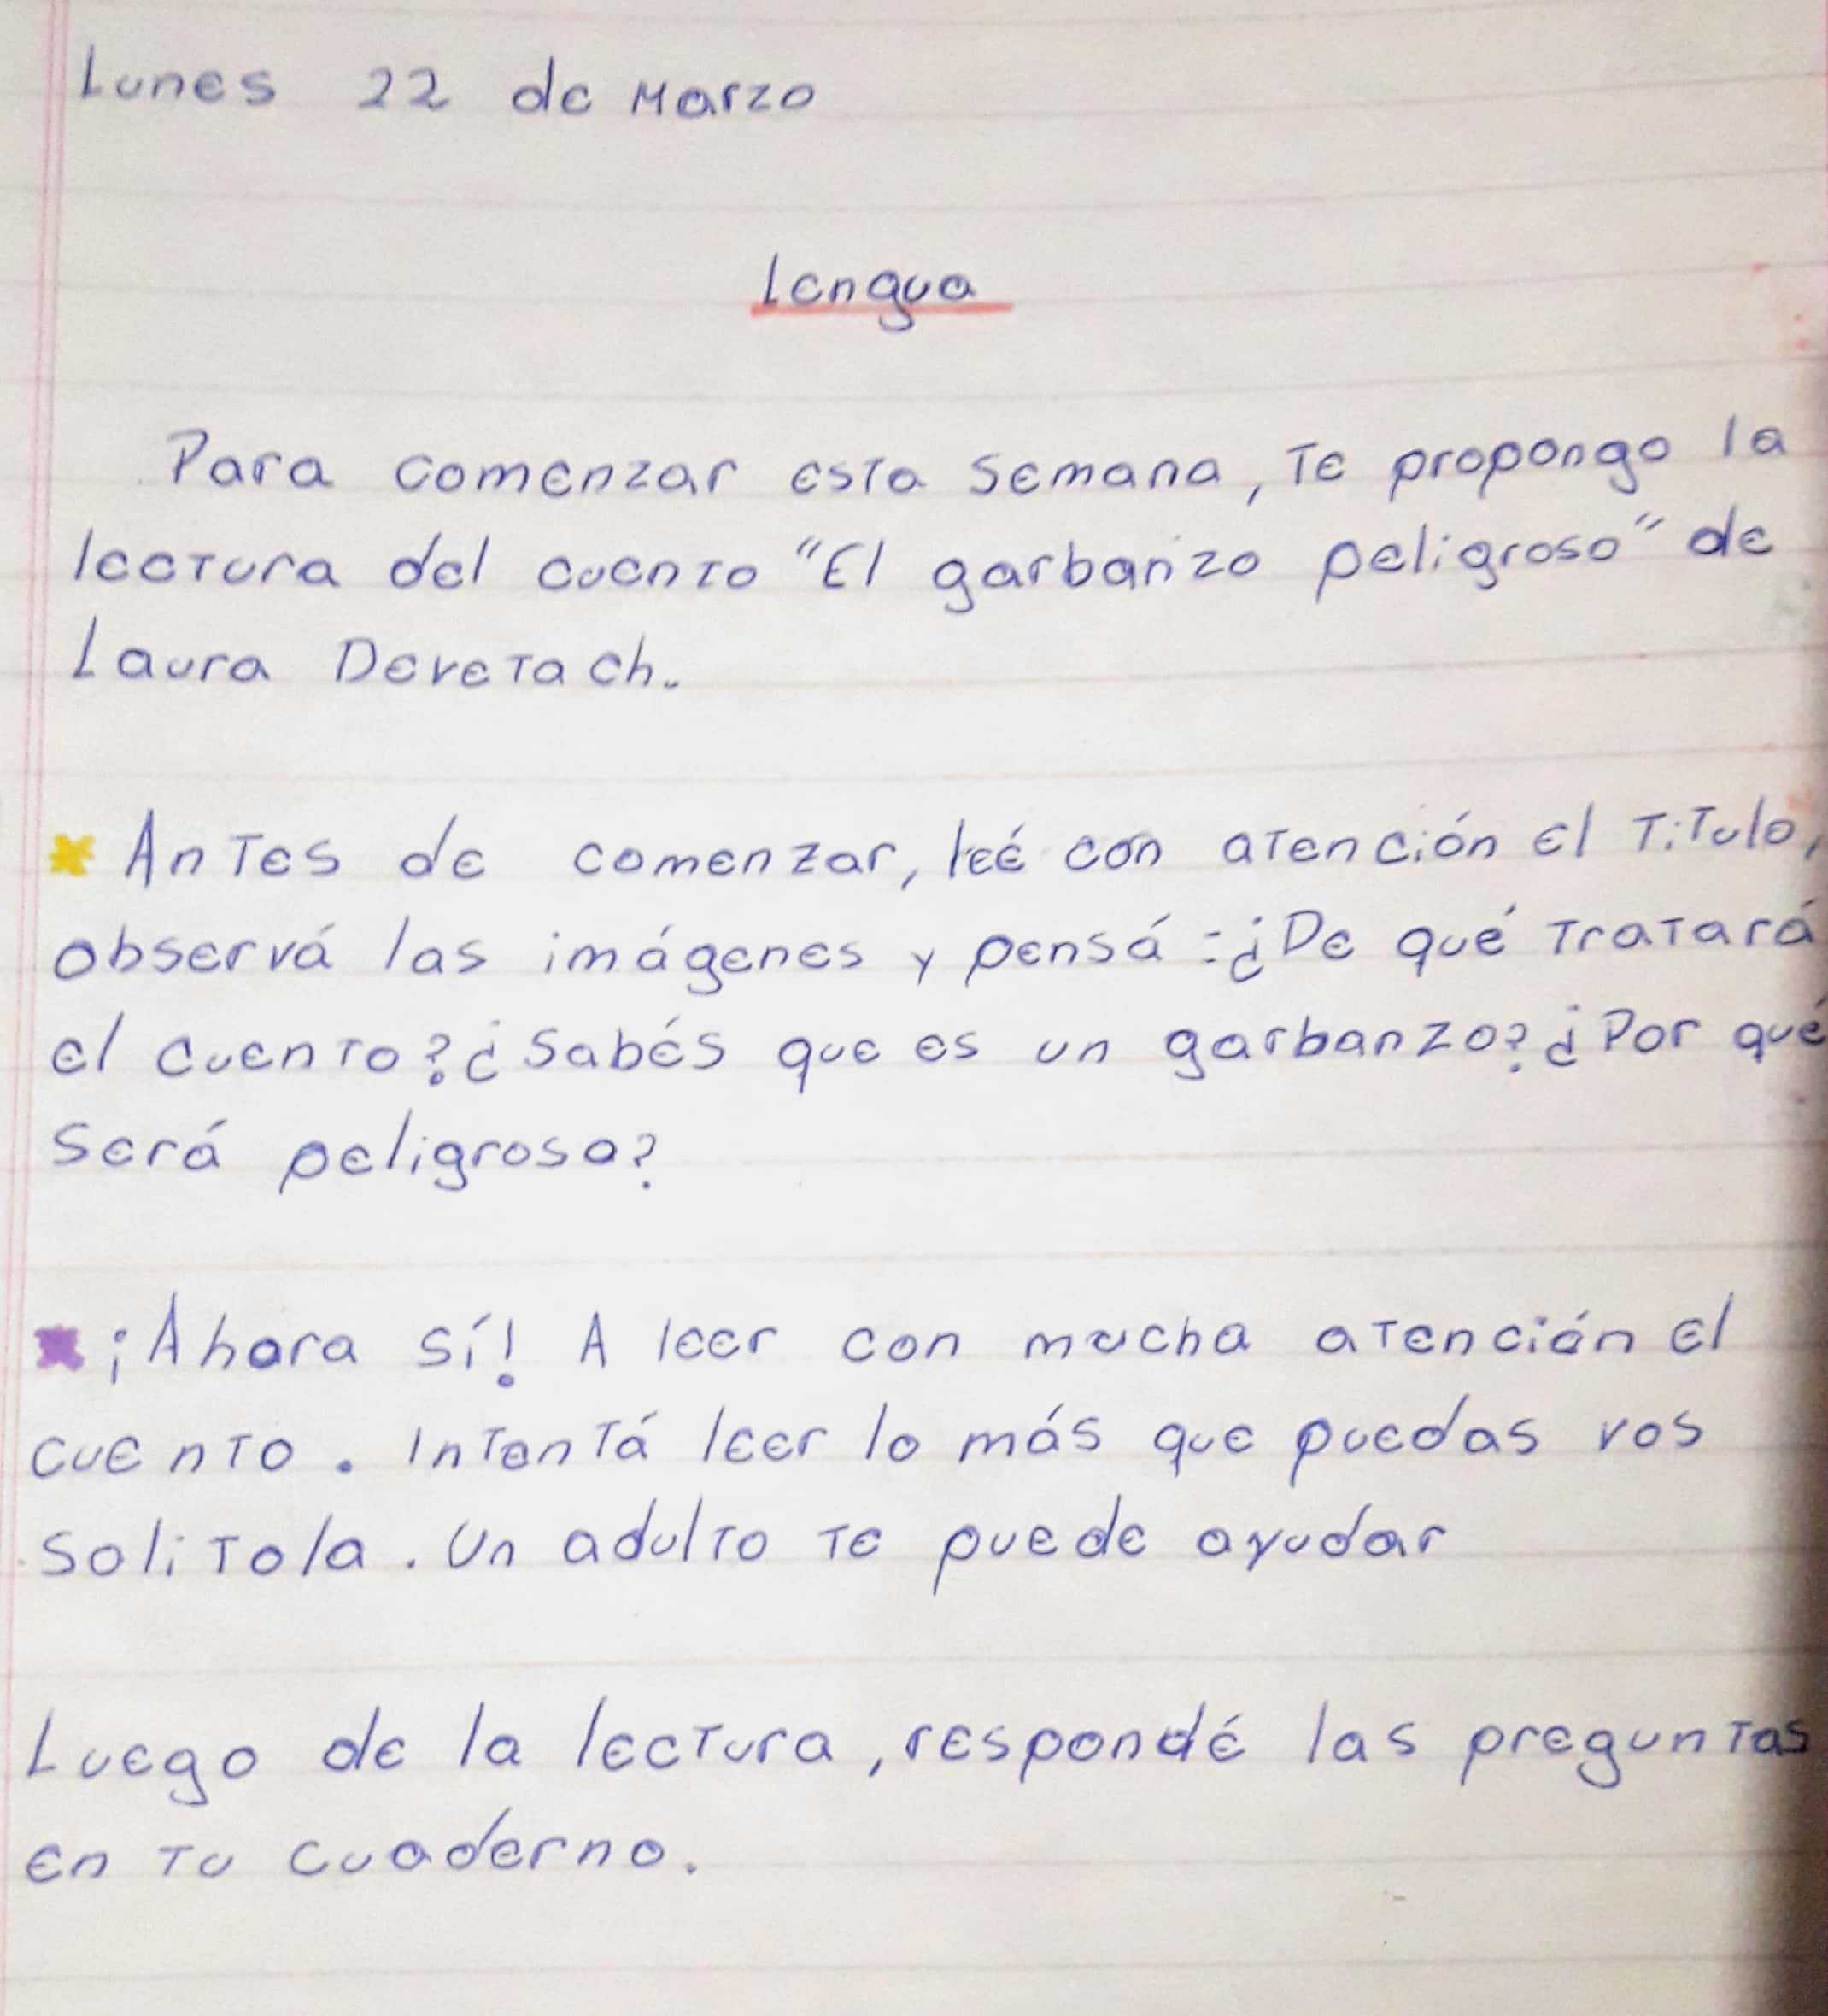 Lunes 22 de Marzo
Lengua
Para comenzar esta semana, te propongo la
lectura del cuento "El garbanzo peligroso" de
Laura Devetach.
Antes de comenzar, leé con atención el Titulo,
observá las imágenes y pensá: ¿De qué tratará
el cuento? ¿Sabés que es un garbanzo? ¿Por qué
será peligroso?
¡Ahora sí! A leer con mucha atención el
cuento. Intentá leer lo más que puedas vos
solitola. Un adulto te puede ayudar
Luego de la lectura, respondé las preguntas
en tu cuaderno.